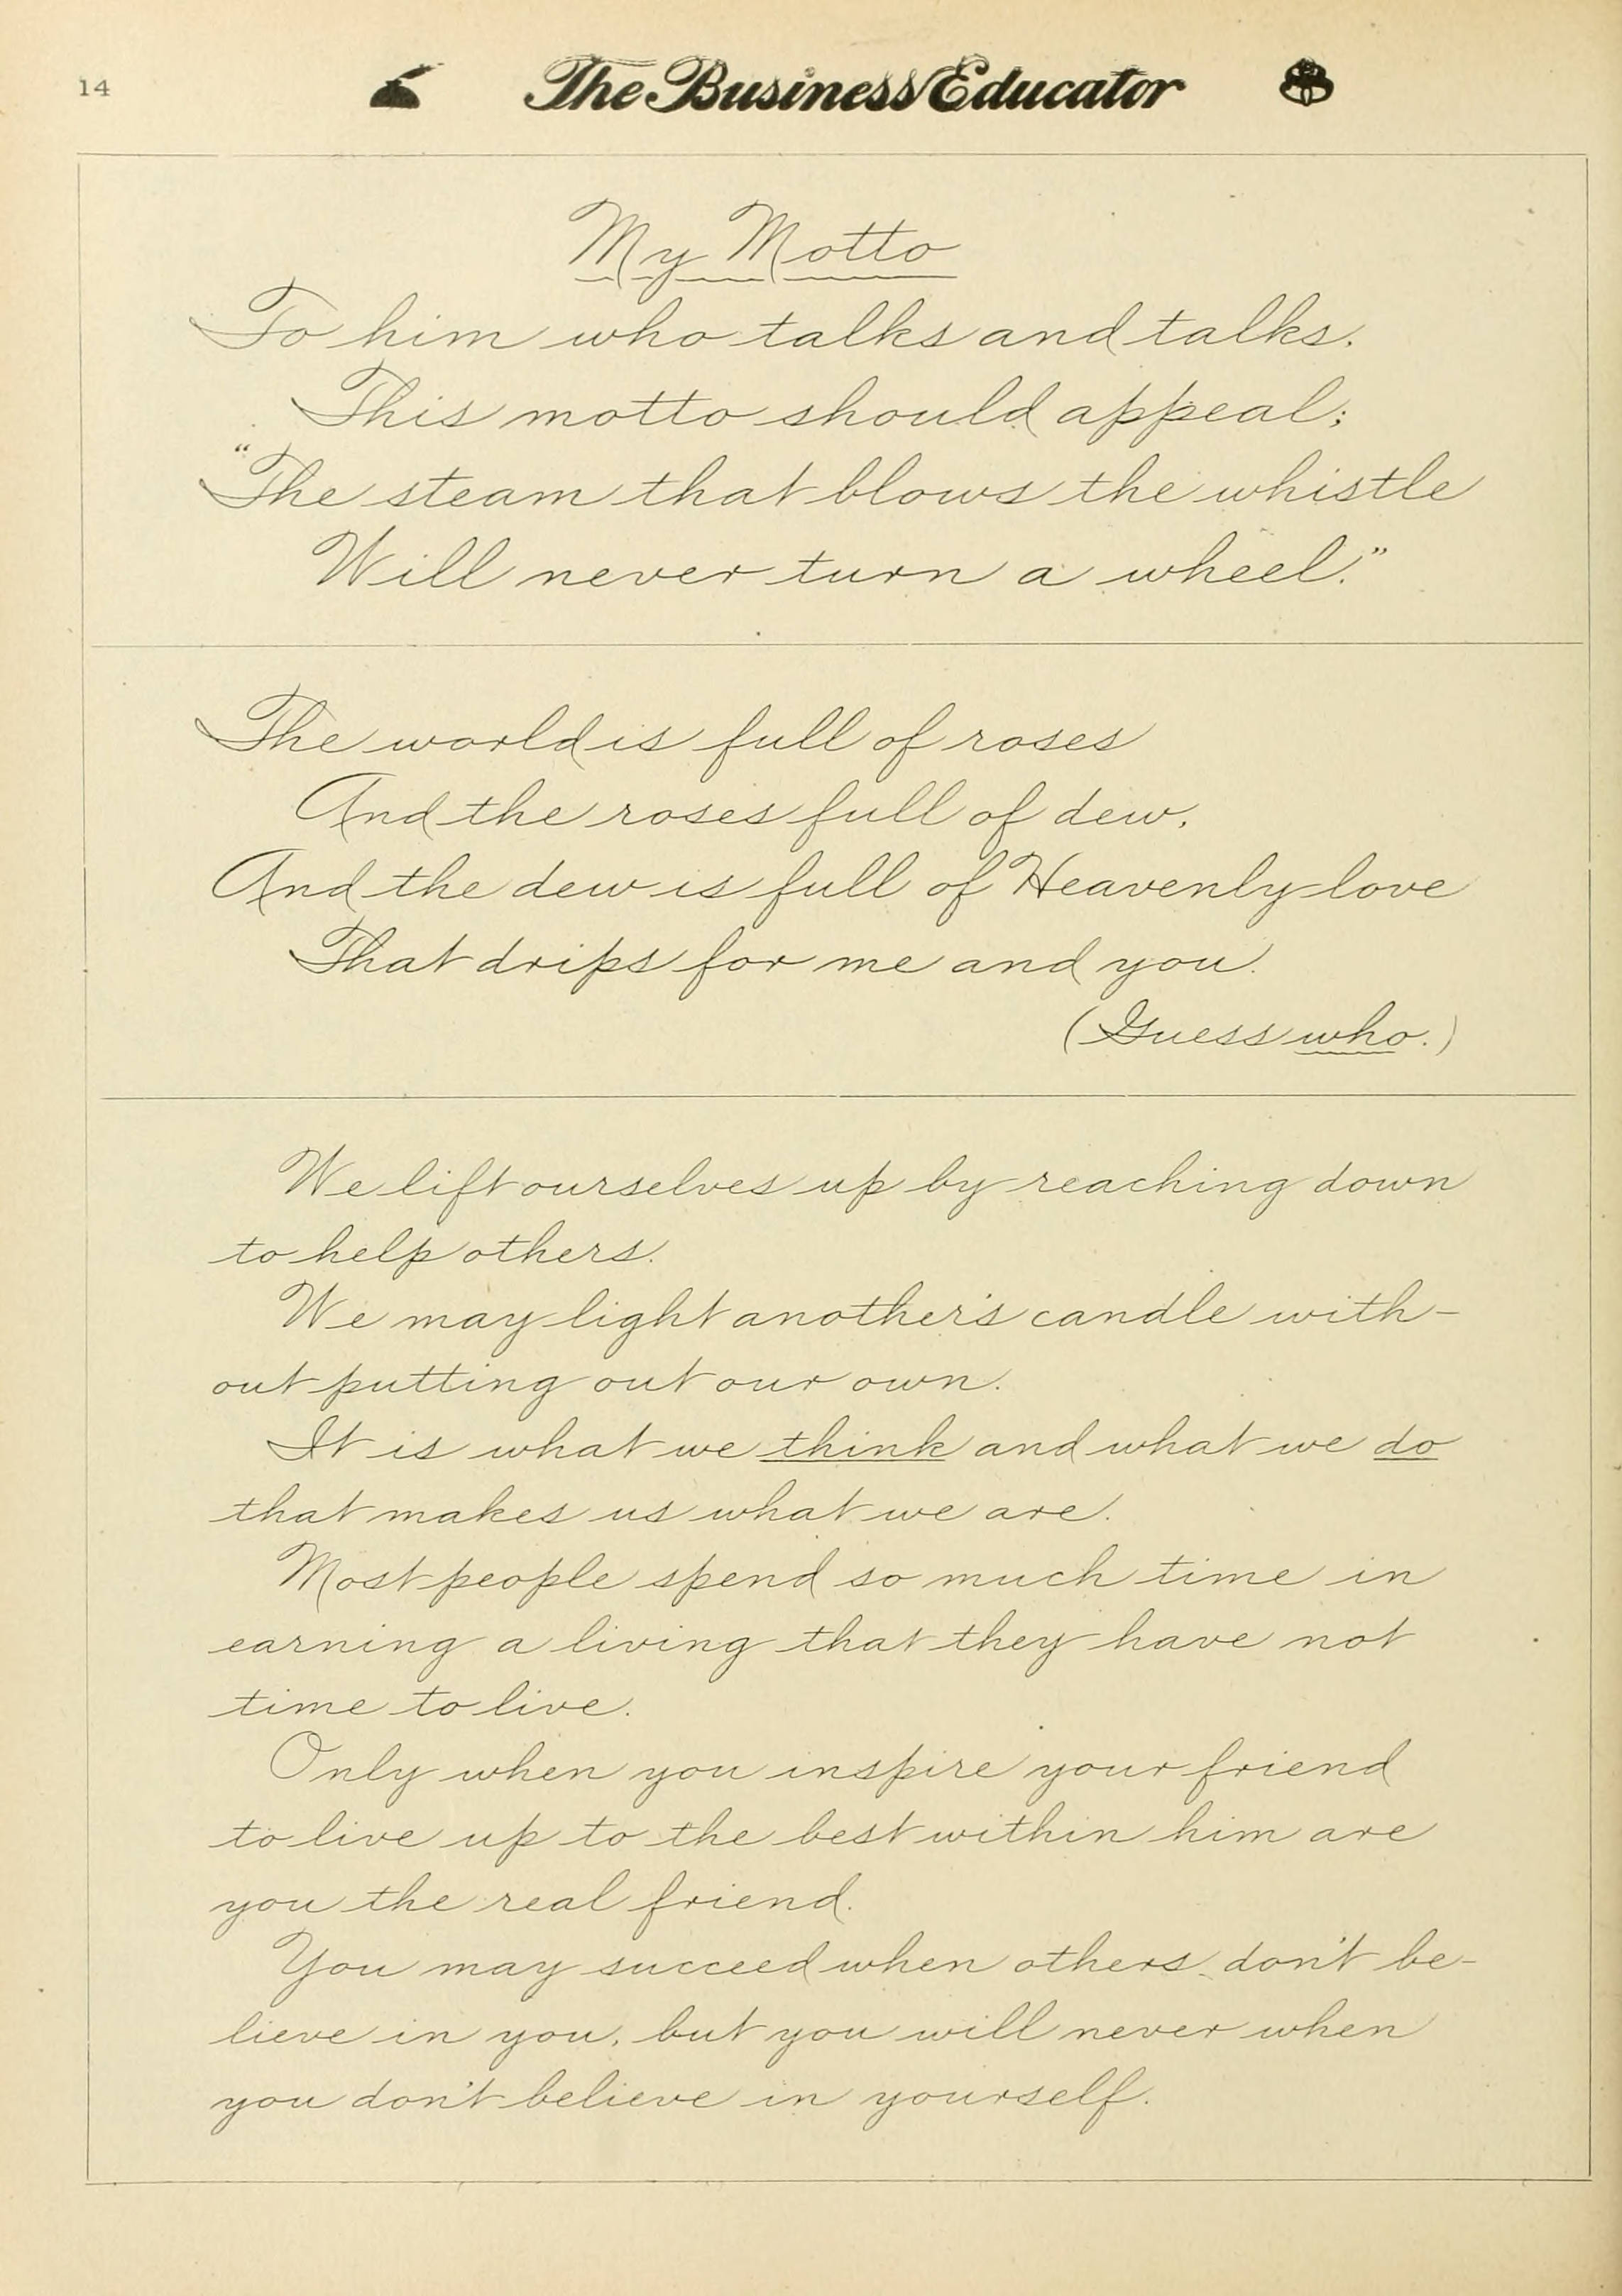 14
The Business Educator
My Motto
To him who talks and talks,
This motto should appeal;
"The steam that blows the whistle
Will never turn a wheel."
The world is full of roses
And the roses full of dew,
And the dew is full of Heavenly love
That drips for me and you.
(Guess who.)
We lift ourselves up by reaching down
to help others.
We may light another's candle with-
out putting out our own.
It is what we think and what we do
that makes us what we are.
Most people spend so much time in
earning a living that they have not
time to live.
Only when you inspire your friend
to live up to the best within him are
you the real friend.
You may succeed when others don't be-
lieve in you, but you will never when
you don't believe in yourself.